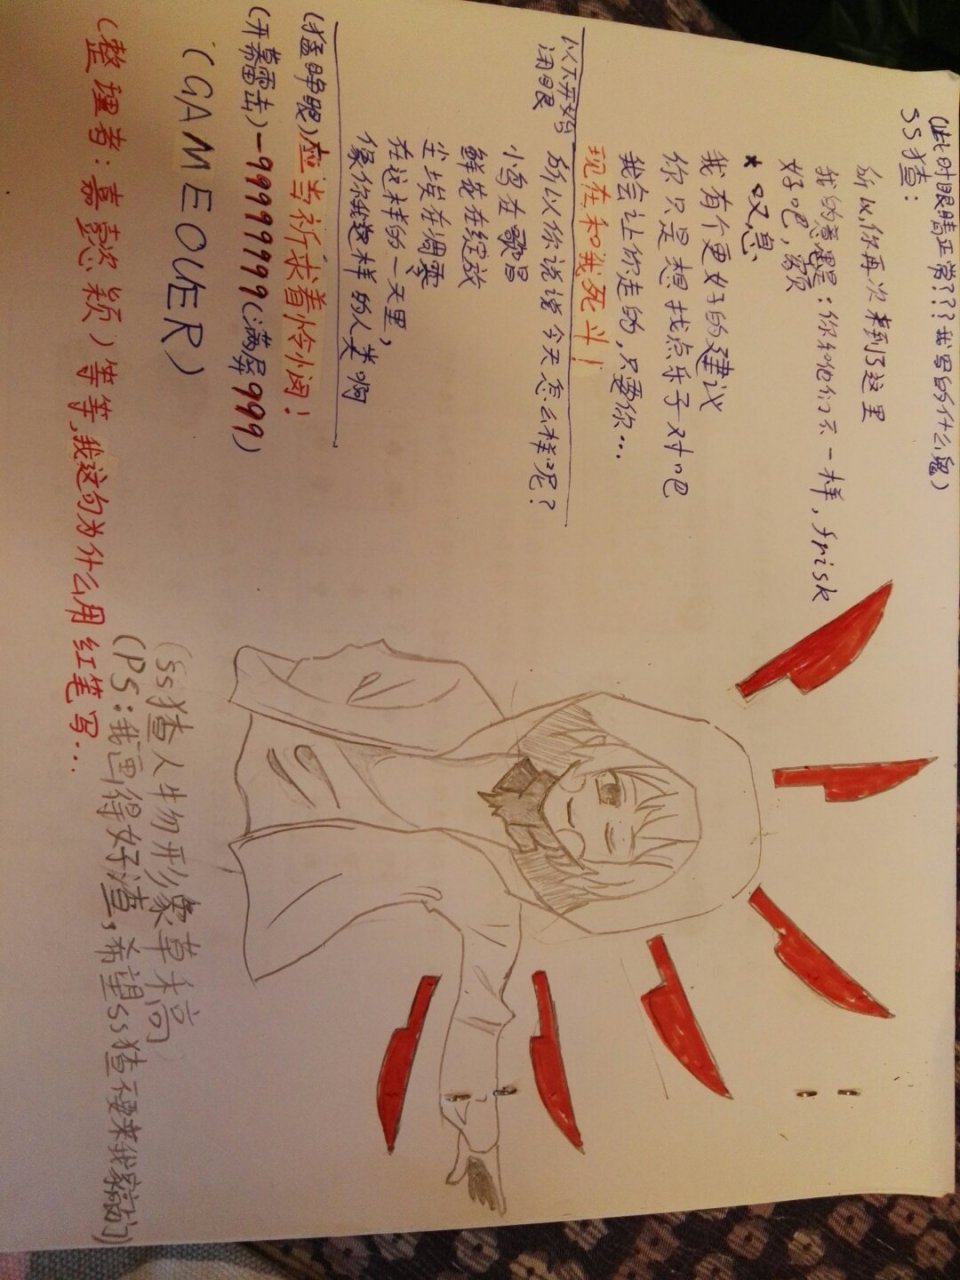 (此时眼睛正常???我写的什么鬼)
SS猹:
所以你再次来到了这里
我的意思是:你和他们不一样,frisk
好吧,孩
*叹息
我有个更好的建议
你只是想找点乐子对吧
我会让你走的,只要你…
现在和我死斗!
以下开始闭眼
所以你说说今天怎么样呢?
小鸟在歌唱
鲜花在绽放
尘埃在凋零
在这样的一天里,
像你我这样的人类啊
(猛睁眼)应当祈求着怜悯!
(开幕雷击)-99999999(满屏999)
(GAMEOVER)
(整理者:嘉懿颖)等等,我这句为什么用红笔写…
(SS猹人物形象草稿)
(PS:我画得好渣,希望SS猹不要来我家敲门)